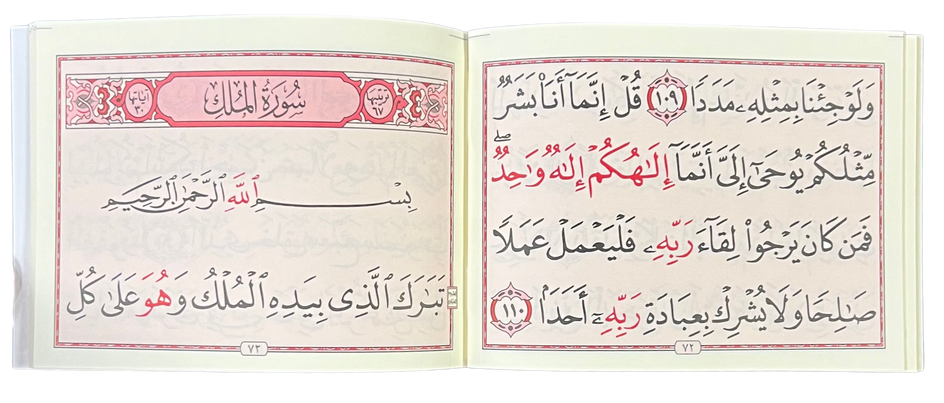 وَلَوْ جِئْنَا بِمِثْلِهِۦ مَدَدًا ١٠٩ قُلْ إِنَّمَآ أَنَا۠ بَشَرٌ
مِّثْلُكُمْ يُوحَىٰٓ إِلَىَّ أَنَّمَآ إِلَـٰهُكُمْ إِلَـٰهٌ وَٰحِدٌ ۖ
فَمَن كَانَ يَرْجُوا۟ لِقَآءَ رَبِّهِۦ فَلْيَعْمَلْ عَمَلًا
صَـٰلِحًا وَلَا يُشْرِكْ بِعِبَادَةِ رَبِّهِۦٓ أَحَدًۢا ١١٠
٧٢
ترتيبها ٦٧
سُورَةُ الْمُلْكِ
آياتها ٣٠
بِسْمِ ٱللَّهِ ٱلرَّحْمَـٰنِ ٱلرَّحِيمِ
تَبَـٰرَكَ ٱلَّذِى بِيَدِهِ ٱلْمُلْكُ وَهُوَ عَلَىٰ كُلِّ
٧٣